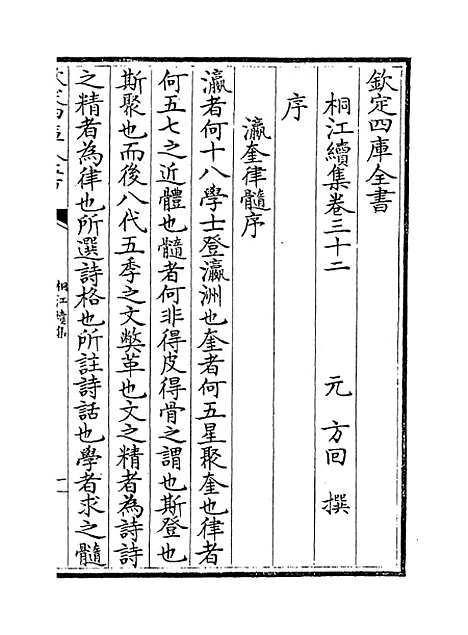 欽定四庫全書
桐江續集卷三十二
元 方回 撰
序
瀛奎律髓序
瀛者何十八學士登瀛洲也奎者何五星聚奎也律者
何五七之近體也髓者何非得皮得骨之謂也斯登也
斯聚也而後八代五季之文弊革也文之精者為詩詩
之精者為律也所選詩格也所註詩話也學者求之髓
桐江續集
一